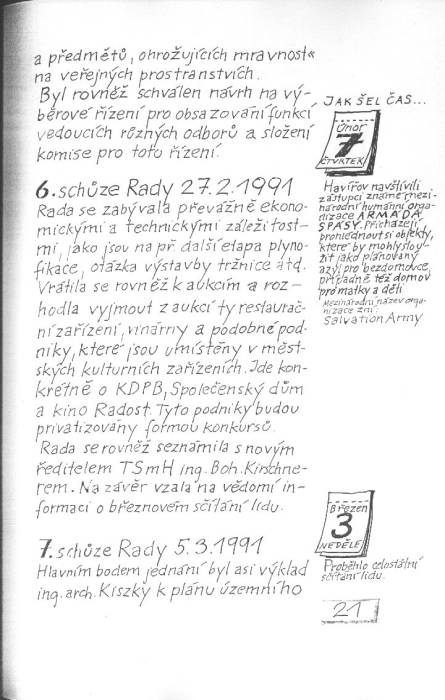 a předmětů, ohrožujících mravnost«
na veřejných prostranstvích.
Byl rovněž schválen návrh na vý-
běrové řízení pro obsazování funkcí
vedoucích různých odborů a složení
komise pro toto řízení.
6. schůze Rady 27.2.1991
Rada se zabývala převážně ekono-
mickými a technickými záležitost-
mi, jako jsou na př další etapa plyno-
fikace, otázka výstavby tržnice atd.
Vrátila se rovněž k aukcím a roz-
hodla vyjmout z aukcí ty restaurač-
ní zařízení, vinárny a podobné pod-
niky, které jsou umístěny v měst-
ských kulturních zařízeních. Jde kon-
krétně o KDPB, Společenský dům
a kino Radost. Tyto podniky budou
privatizovány formou konkursů.
Rada se rovněž seznámila s novým
ředitelem TSmH ing. Boh. Kirschne-
rem. Na závěr vzala na vědomí in-
formaci o březnovém sčítání lidu.
7. schůze Rady 5.3.1991
Hlavním bodem jednání byl asi výklad
ing. arch. Kiszky k plánu územního
JAK ŠEL ČAS...
Únor
7
ČTVRTEK
Havířov navštívili
zástupci známé mezi-
národní humánní orga-
nizace ARMÁDA
SPÁSY. Přicházejí
prohlédnout si objekty,
které by mohly slou-
žit jako plánovaný
azyl pro bezdomovce,
případně též domov
pro matky a děti.
Mezinárodní název orga-
nizace zní:
Salvation Army
Březen
3
NEDĚLE
Proběhlo celostátní
sčítání lidu.
21